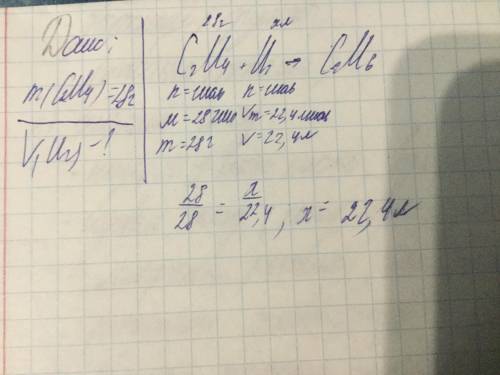 Дано:
m(C2H4)=28г
V(H2)-?
28г xл
C2H4 + H2 → C2H6
n=1моль n=1моль
M=28г/моль Vm=22,4л/моль
m=28г V=22,4л
28/28 = x/22,4, x= 22,4л